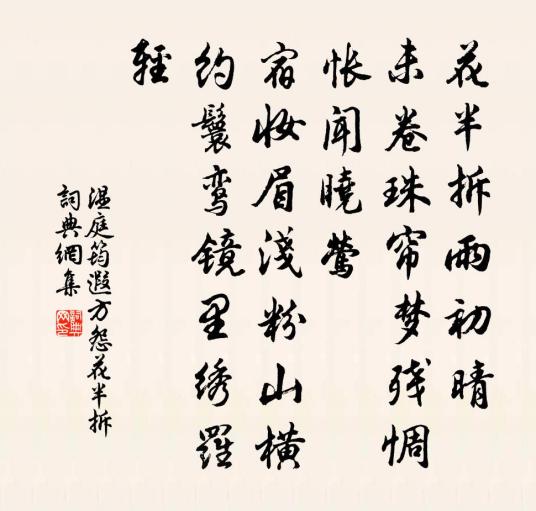 花半拆雨初晴
未卷珠帘梦残惆
怅闻曉莺
宿妆眉淺粉山橫
约鬟鸾镜里绣羅
輕
温庭筠遐方怨花半拆
詞典網集